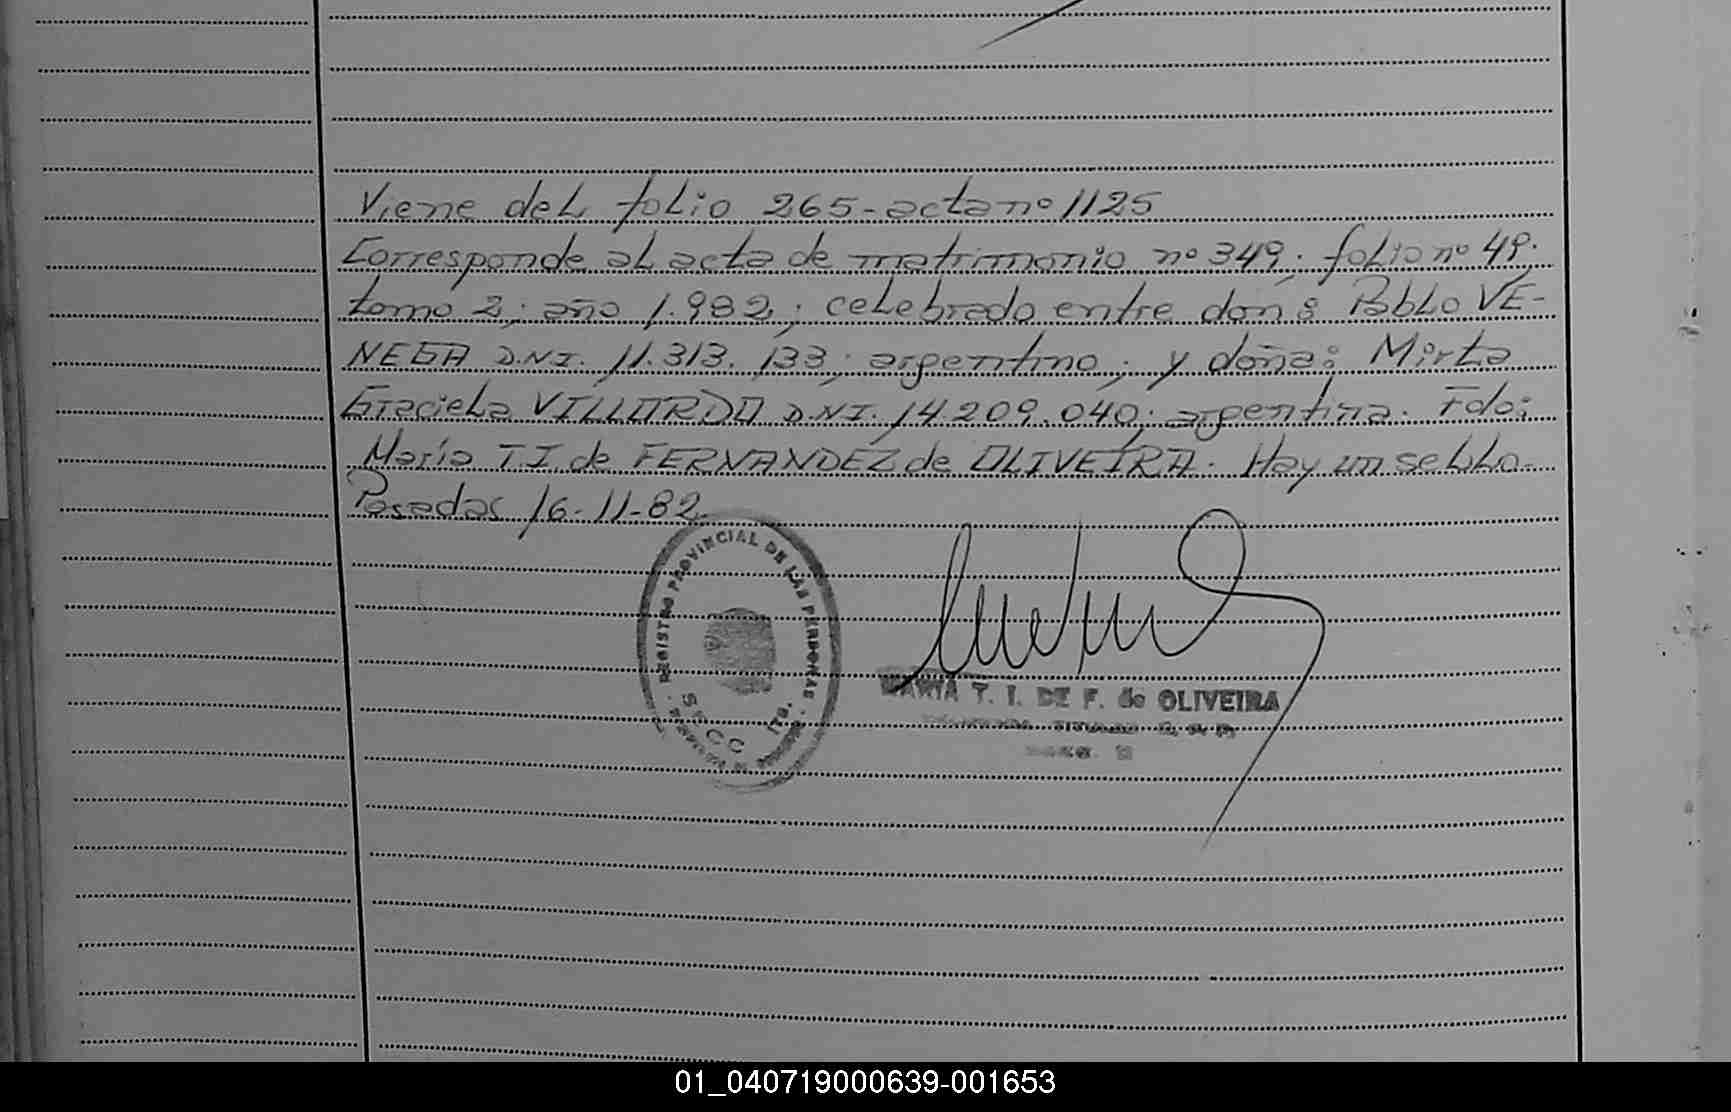 Viene del folio 265-acta nº 1125
Corresponde al acta de matrimonio nº 349; folio nº 49;
tomo 2; año 1.982; celebrado entre don: Pablo VE-
NEGA D.N.I. 11.313.133; argentino; y doña: Mirta
Graciela VILLORDO D.N.I. 14.209.040; argentina. Fdo:
María T.I. de FERNANDEZ de OLIVEIRA. Hay un sello.
Posadas 16-11-82.
REGISTRO PROVINCIAL DE LAS PERSONAS
SECC ITS.
MARIA T. I. DE F. de OLIVEIRA
TITULAR
01_040719000639-001653